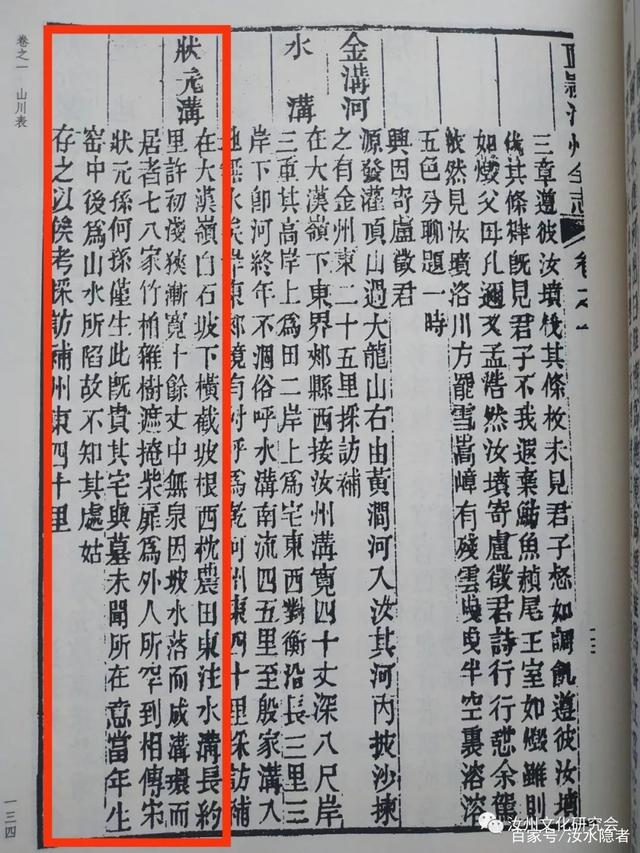 直隸汝州全志 卷之一
三章遵彼汝墳伐其條枚未見君子惄如調飢遵彼汝墳
伐其條肄既見君子不我遐棄魴魚赬尾王室如燬雖則
如燬父母孔邇又孟浩然汝墳寄盧徵君詩行行憩余駕
依然見汝墳洛川方罷雪嵩嶂有殘雲曳曳半空裏溶溶
五色分聊題一時
興因寄盧徵君
源發灌頂山過大龍山右由黃澗河入汝其河內披沙揀
金溝河
之有金州東二十五里採訪補
水溝
在大漢嶺下東界郟縣西接汝州溝寬四十丈深八尺岸
三重其高岸上爲田二岸上爲宅東西對衡沿長三里三
岸下卽河終年不涸俗呼水溝南流四五里至殷家溝入
地無水矣岸東郟境有村呼爲乾河州東四十里採訪補
狀元溝
在大漢嶺白石坡下橫截坡根西枕農田東注水溝長約
里許初淺狹漸寬十餘丈中無泉因坡水落而成溝環而
居者七八家竹柏雜樹遮掩柴扉爲外人所罕到相傳宋
狀元孫何孫僅生此既貴其宅與墓未聞所在意當年生
窑中後爲山水所陷故不知其處姑
存之以俟考採訪補州東四十里
卷之一 山川表
一三四
汝州文化研究会
百家号/汝水隐者